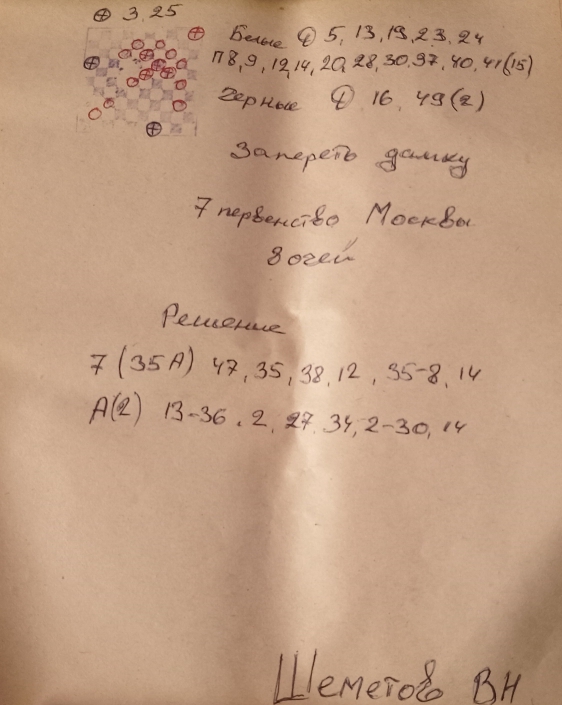 ⊕ 3.25
Белые ⊕ 5, 13, 19, 23, 24
П 8, 9, 12, 14, 20, 28, 30, 37, 40, 41 (15)
Черные ⊕ 16, 49 (2)
Запереть дамку
7 первенство Москвы
8 очей
Решение
7 (35А) 47, 35, 38, 12, 35-8, 14
А(2) 13-36, 2, 27, 34, 2-30, 14
Шеметов ВН